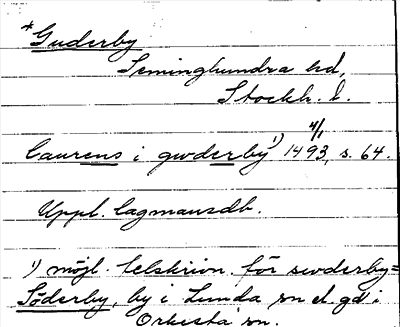 *Guderby
Seminghundra hd,
Stockh. l.
4/1
laurens i gwderby 1) 1493, s. 64.
Uppl. lagmansdb.
1) möjl. felskrivn. för swderby=
Söderby, by i Lunda sn el. gd i
Orkesta sn.